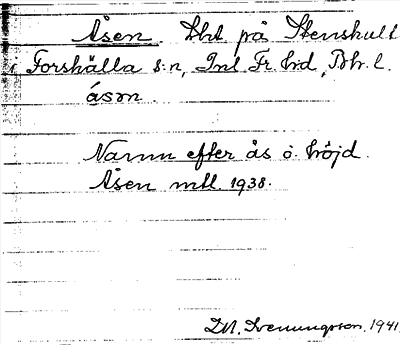 Åsen. Lht på Stenshult
i Forshälla s:n, Inl. Fr. hd, Bh. l.
åsɷn.
Namn efter ås o. höjd.
Åsen mtl. 1938.
Sveningsson. 1941.